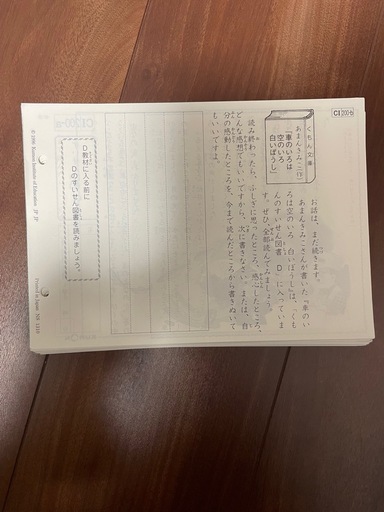 CⅠ 200-b
くもん文庫
あまんきみこ(作)
「車のいろは
空のいろ
白いぼうし」
お話は、まだ続きます。
あまんきみこさんが書いた『車のい
ろは空のいろ 白いぼうし』は、「くも
んのすいせん図書 D」に入っていま
す。ぜひ、全部読んでみましょう。
読み終わったら、ふしぎに思ったところ、感心したところ、
どんな感想でもいいですから、次に書きなさい。または、自
分の感動したところを、今まで読んだところから書きぬいて
もいいですよ。
D教材に入る前に
Dのすいせん図書を読みましょう。
© 1990 Kumon Institute of Education JP JP
Printed in Japan